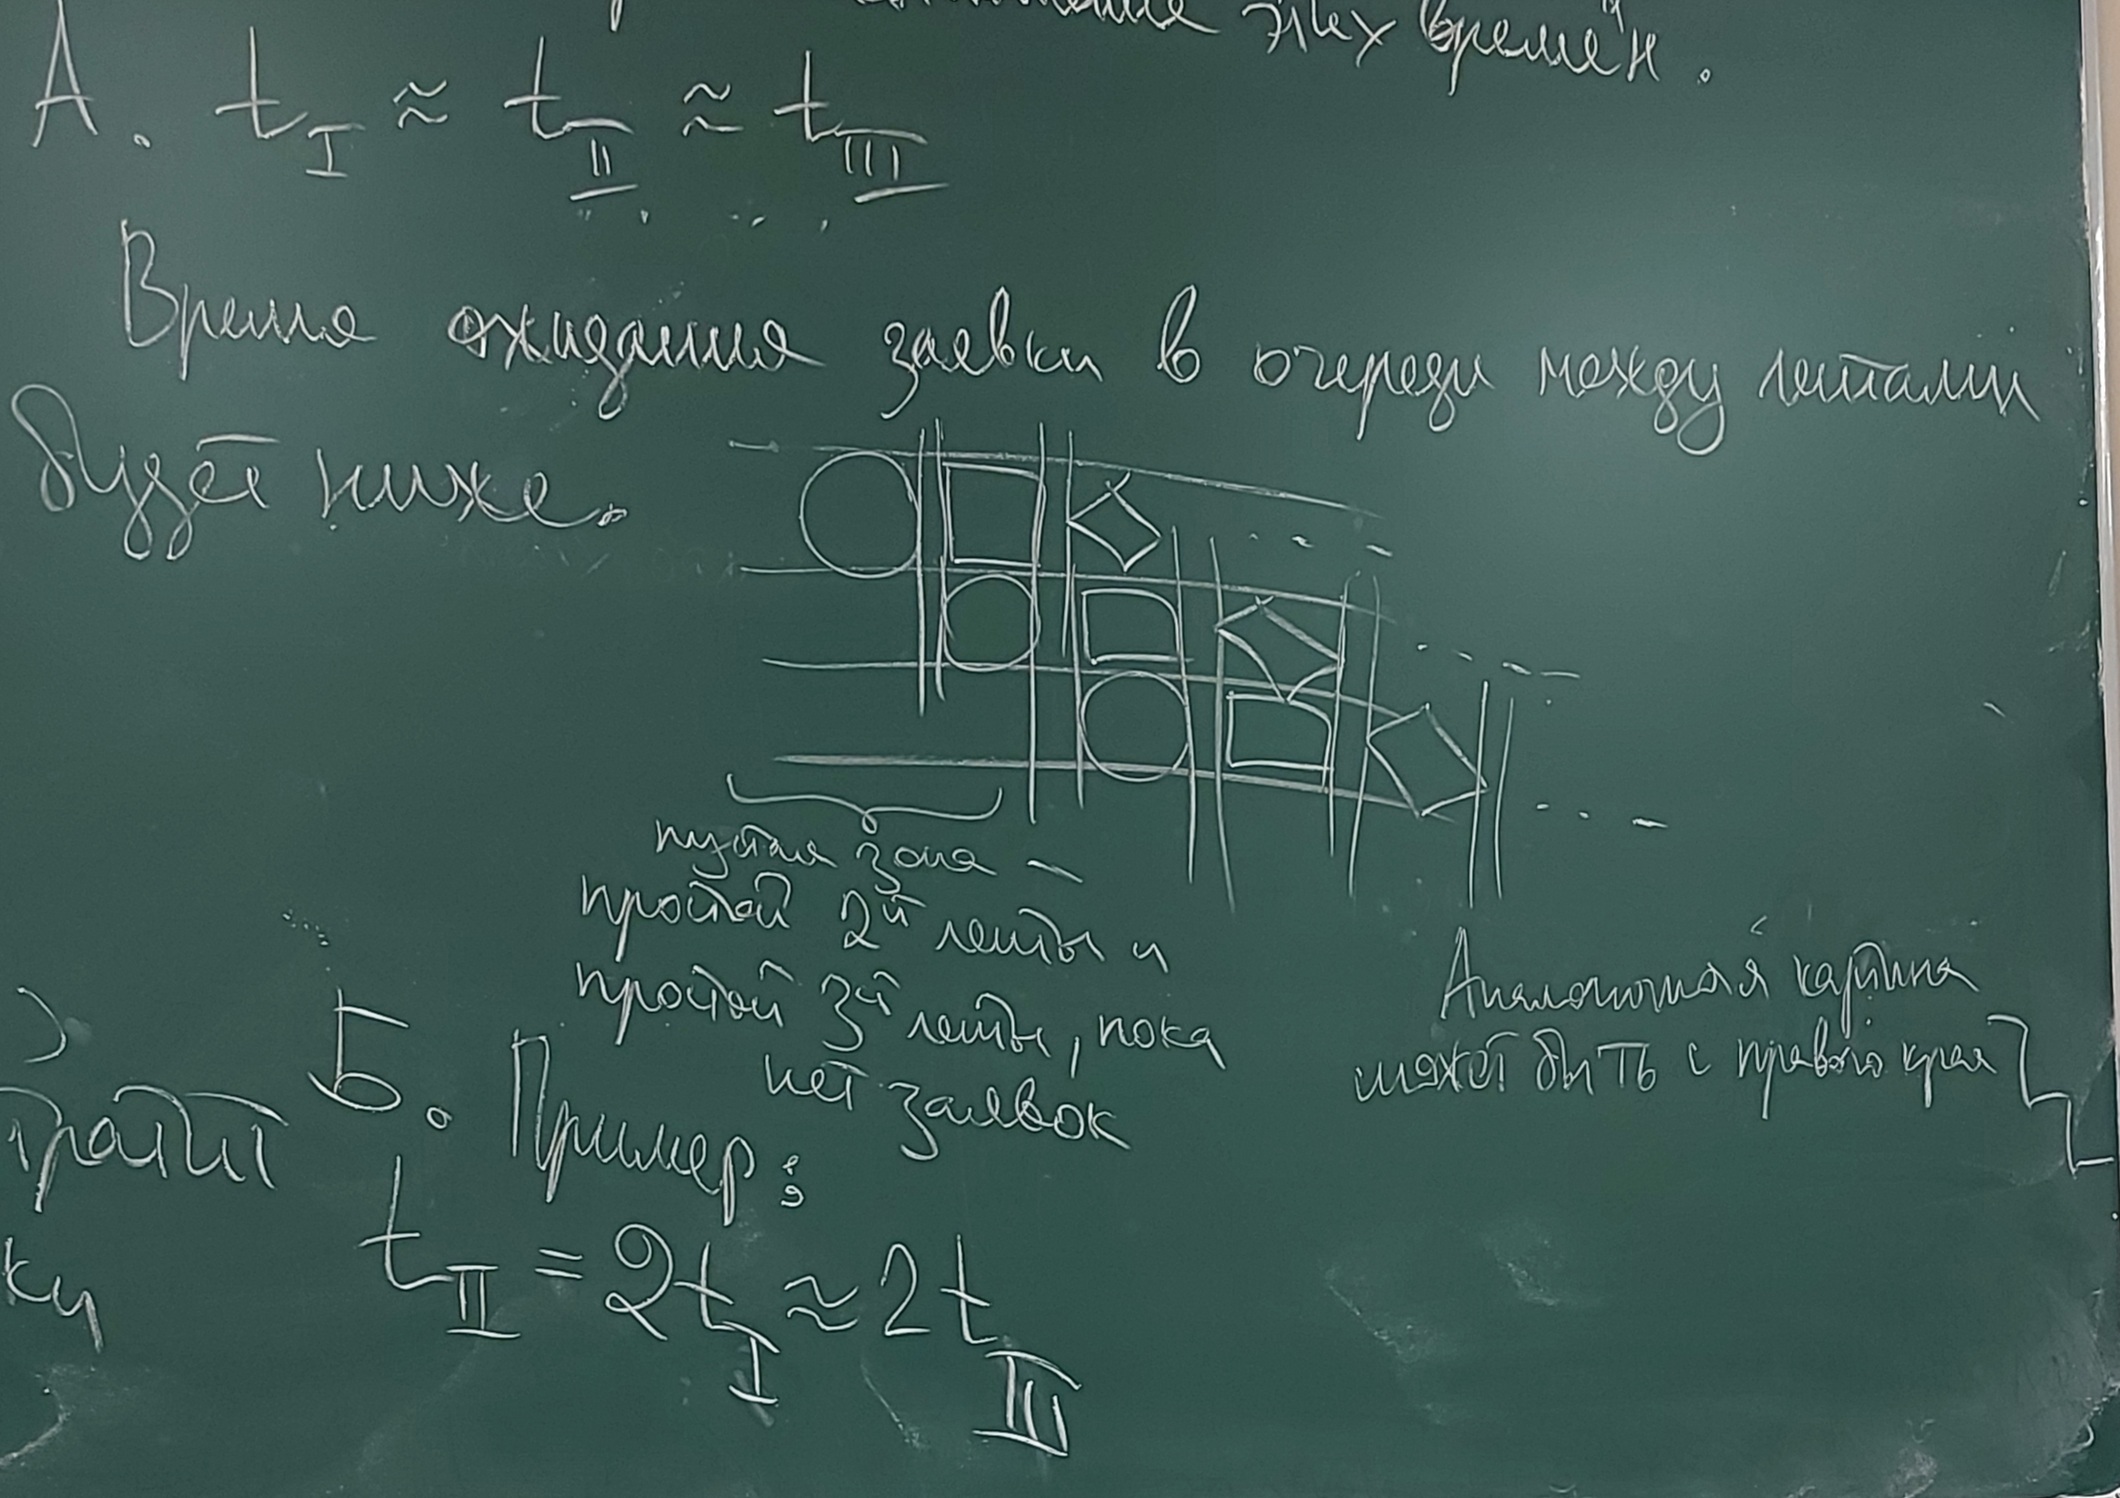 этих времён.
А. t_I ≈ t_II ≈ t_III
Время ожидания заявки в очереди между лентами
будет ниже.
пустая зона –
простой 2й ленты и
простой 3й ленты, пока
нет заявок
Аналогичная картина
может быть с правого края
Б. Пример:
t_II = 2t_I ≈ 2t_III